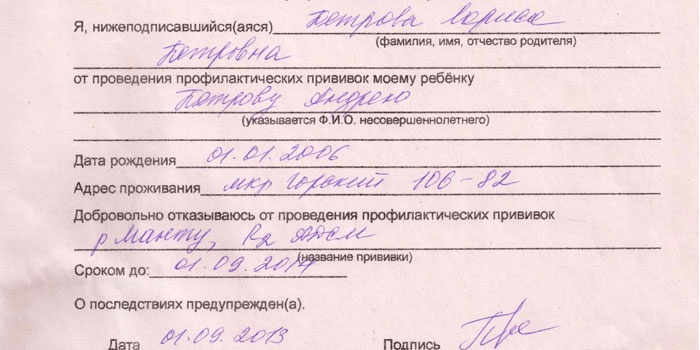 Я, нижеподписавшийся(аяся) Петрова Лариса
(фамилия, имя, отчество родителя)
Петровна
от проведения профилактических прививок моему ребёнку
Петрову Андрею
(указывается Ф.И.О. несовершеннолетнего)
Дата рождения 01.01.2006
Адрес проживания мкр Горский 106-82
Добровольно отказываюсь от проведения профилактических прививок
р Манту, R2 АДСМ
(название прививки)
Сроком до: 01.09.2014
О последствиях предупрежден(а).
Дата 01.09.2013 Подпись